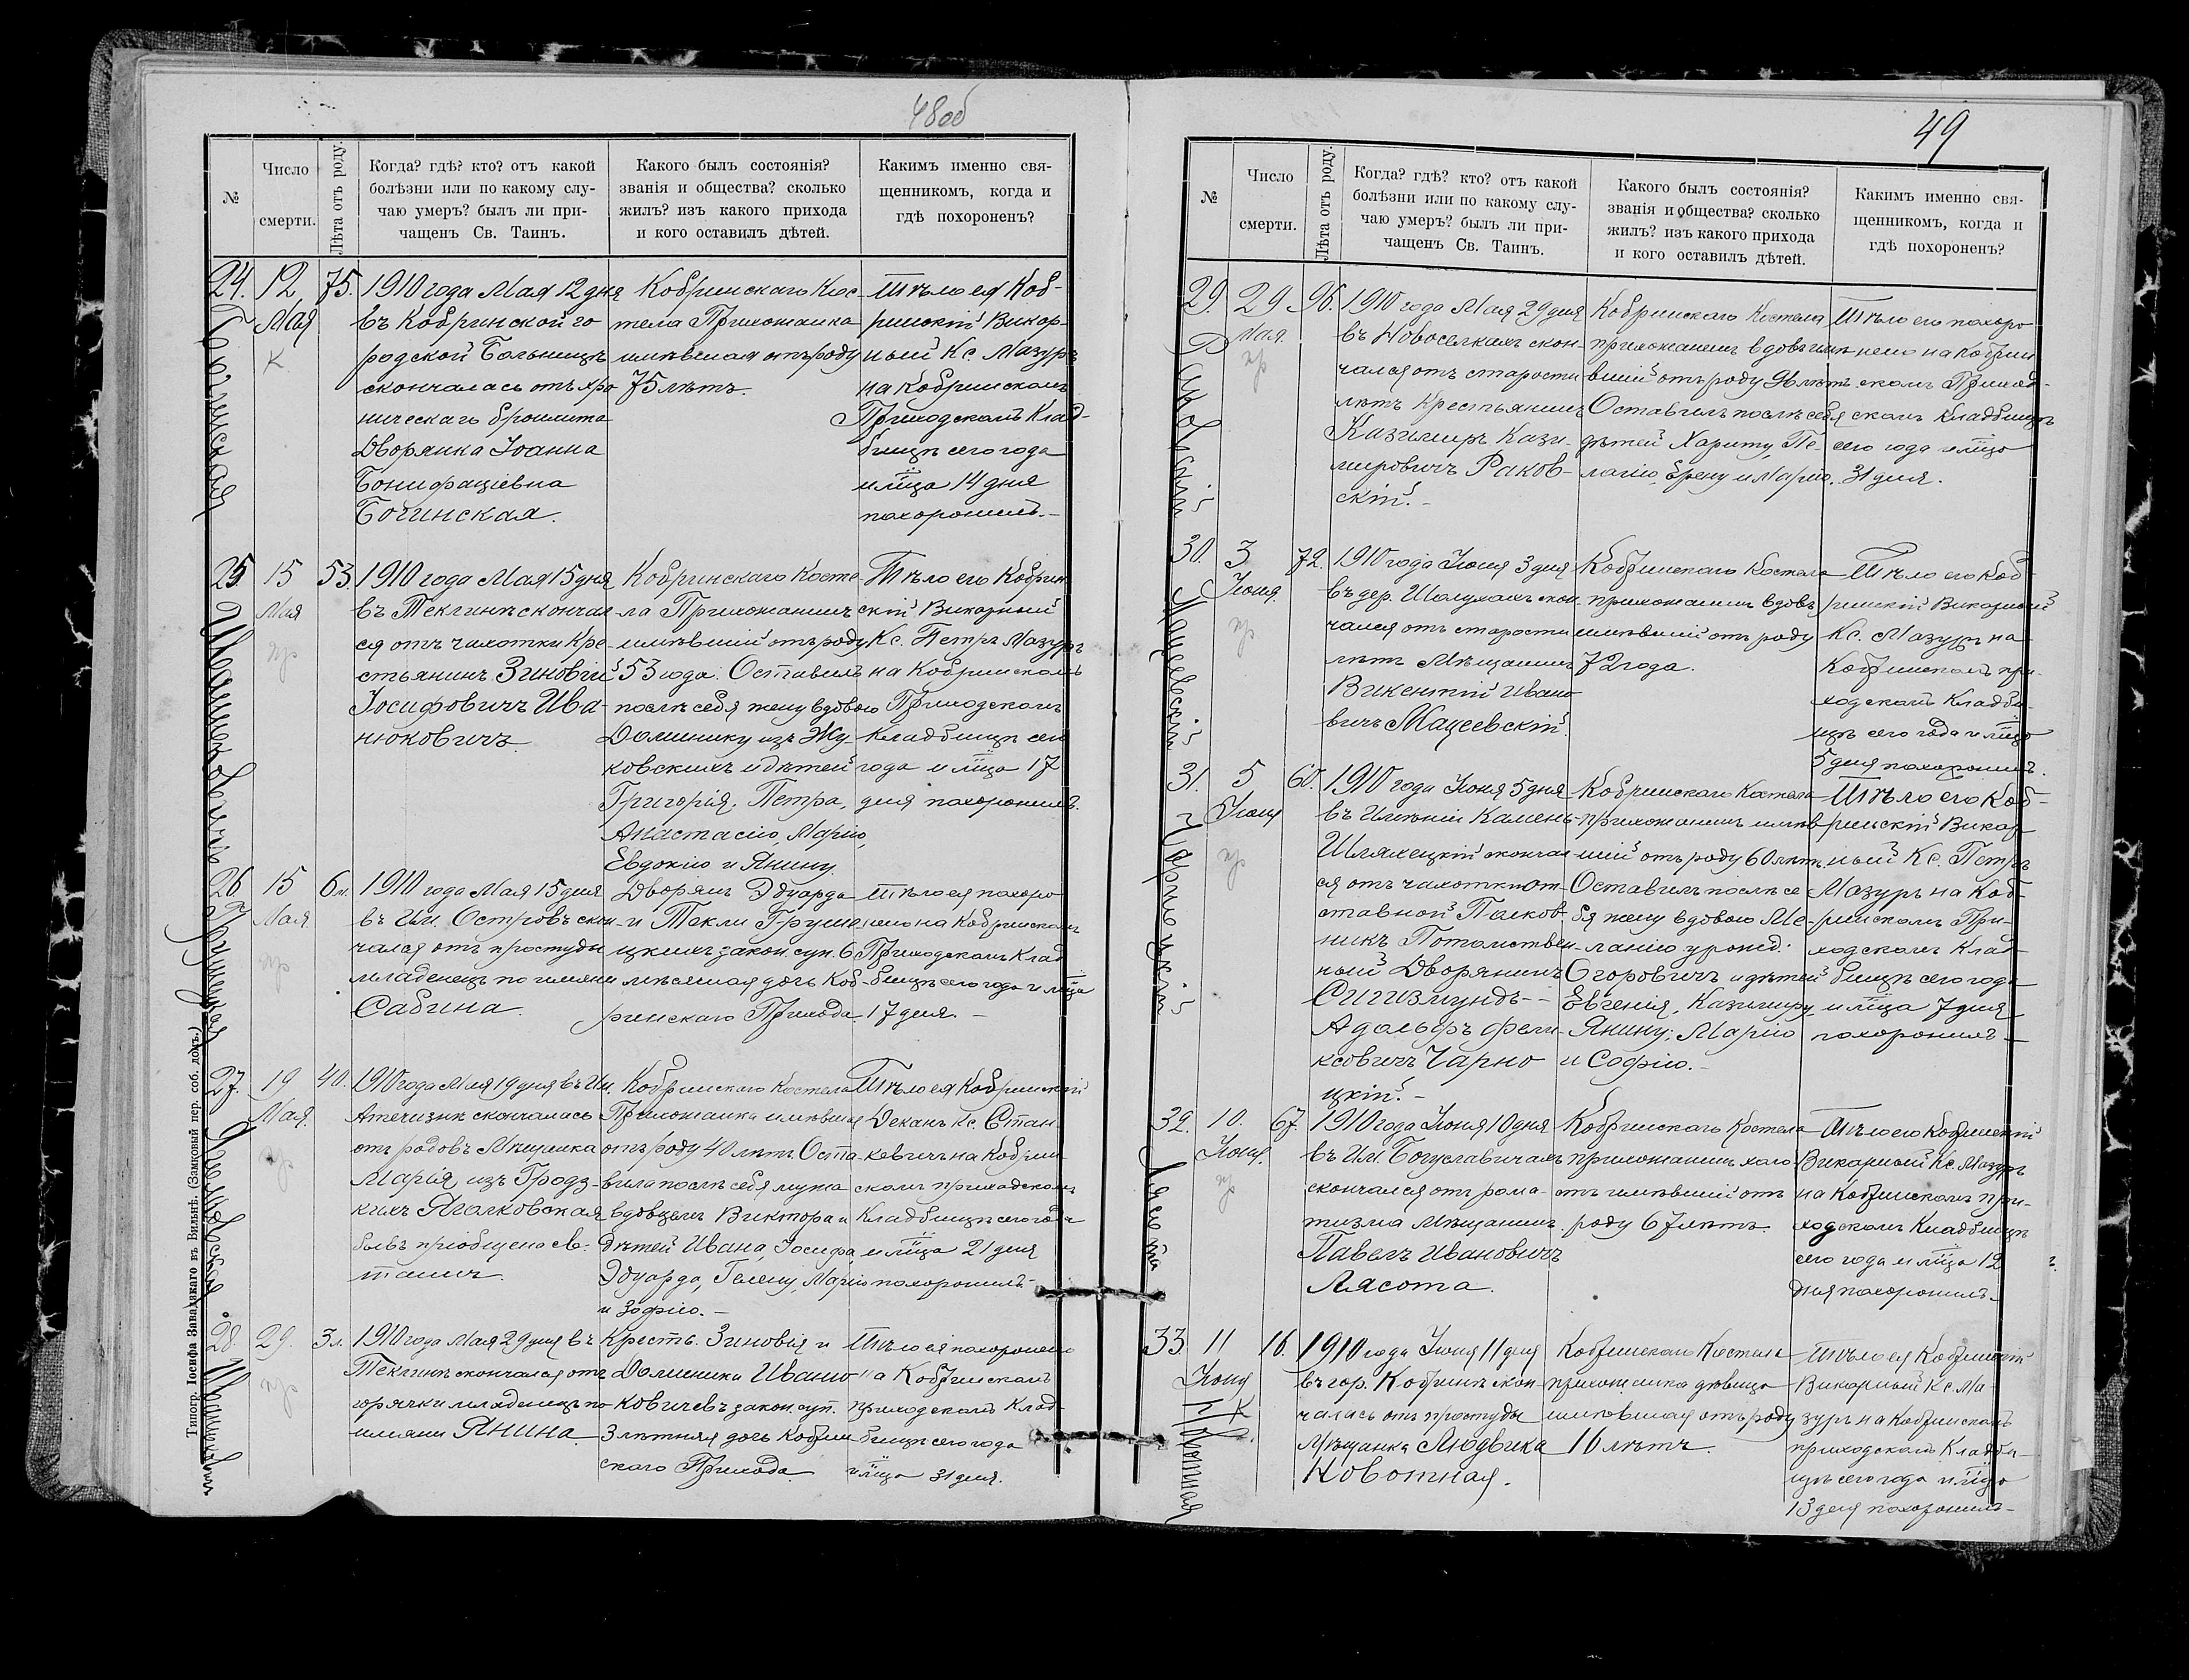 48об
№
Число
смерти.
Лѣта отъ роду.
Когда? гдѣ? кто? отъ какой
болѣзни или по какому слу-
чаю умеръ? былъ ли при-
чащенъ Св. Таинъ.
Какого былъ состоянія?
званія и общества? сколько
жилъ? изъ какого прихода
и кого оставилъ дѣтей.
Какимъ именно свя-
щенникомъ, когда и
гдѣ похороненъ?
24.
Богинская
12
Мая
К
75.
1910 года Мая 12 дня
въ Кобринской го
родской Больницѣ
скончалась отъ хро
ническаго бронхита
Дворянка Іоанна
Бонифаціевна
Богинская.
Кобринскаго Кос-
тела Прихожанка
имѣвшая отъ роду
75 лѣтъ.
Тѣло ея Коб-
ринскій Викар-
ный Кс. Мазуръ
на Кобринскомъ
Приходскомъ Клад-
бищѣ сего года
и мѣца 14 дня
похоронилъ.-
25
15
Мая
кр
53.
1910 года Мая 15 дня
въ Теклинѣ скончал
ся отъ чахотки Кре-
стьянинъ Зиновій
Іосифовичъ Ива-
нюковичъ
Кобринскаго Косте-
ла Прихожанинъ
имѣвшій отъ роду
53 года. Оставилъ
послѣ себя жену вдовою
Доминику изъ Жу-
ковскихъ и дѣтей
Григорія, Петра,
Анастасію, Марію,
Евдокію и Янину.
Тѣло его Кобрин
скій Викарный
Кс. Петръ Мазуръ
на Кобринскомъ
Приходскомъ
Кладбищѣ сего
года и мѣца 17
дня похоронилъ.
26
15
Мая
кр
6 м.
1910 года Мая 15 дня
въ Им. Островъ скон-
чался отъ простуды
младенецъ по имени
Сабина.
Дворянъ Эдуарда
и Текли
цкихъ закон. суп. 6
мѣсячная дочь Коб-
ринскаго Прихода.
Тѣло ея похоро
нено на Кобринскомъ
Приходскомъ Клад
бищѣ сего года и мѣца
17 дня.-
27.
19
Мая.
кр
40.
1910 года Мая 19 дня въ Им.
скончалась
отъ родовъ Мѣщанка
Марія изъ Гродз-
кихъ Яголковская
бывъ пріобщена св.
таинъ.
Кобринскаго Костела
Прихожанка имѣвшая
отъ роду 40 лѣтъ. Оста-
вила послѣ себя мужа
вдовцемъ Виктора и
Дѣтей Ивана, Іосифа,
Эдуарда, Гелену, Марію
и Зофію.-
Тѣло ея Кобринскій
Деканъ Кс. Стан-
кевичъ на Кобрин-
скомъ приходскомъ
Кладбищѣ сего года
и мѣца 21 дня
похоронилъ-
28.
29.
кр
3 л.
1910 года Мая 29 дня въ
Теклинѣ скончался отъ
горячки младенецъ по
имени Янина.
Крестъ. Зиновія и
Доминики Иваню
ковичевъ закон. суп.
3 лѣтняя дочь Кобрин
скаго Прихода.
Тѣло ея похоронено
на Кобринскомъ
приходскомъ Клад-
бищѣ сего года
и мѣца 31 дня.
Типогр. Іосифа Завадзкаго въ Вильнѣ. (Замковый пер. соб. домъ.)
49
№
Число
смерти.
Лѣта отъ роду.
Когда? гдѣ? кто? отъ какой
болѣзни или по какому слу-
чаю умеръ? былъ ли при-
чащенъ Св. Таинъ.
Какого былъ состоянія?
званія и общества? сколько
жилъ? изъ какого прихода
и кого оставилъ дѣтей.
Какимъ именно свя-
щенникомъ, когда и
гдѣ похороненъ?
29.
Раковскій
29
Мая.
кр
96.
1910 года Мая 29 дня
въ Новоселкахъ скон-
чался отъ старости
лѣтъ Крестьянинъ
Казимиръ Кази-
мировичъ Раков-
скій.-
Кобринскаго Костела
прихожанинъ вдовъ имѣ
вшій отъ роду 96 лѣтъ.
Оставилъ послѣ себя
дѣтей Хариту, Пе-
лагію, Ерену и Марію.
Тѣло его похоро
нено на Кобрин
скомъ Приход-
скомъ Кладбищѣ
сего года и мѣца
31 дня.
30.
Мацеевскій
3
Іюня.
кр
72.
1910 года Іюня 3 дня
въ дер. Шолухахъ скон
чался отъ старости
лѣтъ Мѣщанинъ
Викентій Ивано
вичъ Мацеевскій.
Кобринскаго Костела
прихожанинъ вдовъ
имѣвшій отъ роду
72 года.
Тѣло его Коб-
ринскій Викарный
Кс. Мазуръ на
Кобринскомъ при-
ходскомъ Кладби-
щѣ сего года и мѣца
5 дня похоронилъ.
31.
Чарноцкій
5
Іюня
кр
60.
1910 года Іюня 5 дня
въ Имѣніи Камень-
Шляхецкій скончал
ся отъ чахотки От-
ставной Полков-
никъ Потомствен-
ный Дворянинъ
Сигизмундъ-
Адольфъ Фели-
ксовичъ Чарно
цкій.-
Кобринскаго Костела
прихожанинъ имѣв
шій отъ роду 60 лѣтъ.
Оставилъ послѣ се
бя жену вдовою Ме-
ланію урожд.
Огоровичъ и дѣтей
Евгенія, Казимиру,
Янину, Марію
и Софію.-
Тѣло его Коб-
ринскій Викар
ный Кс. Петръ
Мазуръ на Коб-
ринскомъ При-
ходскомъ Клад-
бищѣ сего года
и мѣца 7 дня
похоронилъ-
32.
Лясота
10.
Іюня.
кр
67.
1910 года Іюня 10 дня
въ Им. Богуславичахъ
скончался отъ рома-
тизма Мѣщанинъ
Павелъ Ивановичъ
Лясота.
Кобринскаго Костела
прихожанинъ холо-
стъ имѣвшій отъ
роду 67 лѣтъ.
Тѣло его Кобринскій
Викарный Кс. Мазуръ
на Кобринскомъ при-
ходскомъ Кладбищѣ
сего года и мѣца 12
дня похоронилъ-
33
Новотная
11
Іюня
К
16.
1910 года Іюня 11 дня
въ гор. Кобринѣ скон-
чалась отъ простуды
Мѣщанка Людвика
Новотная.
Кобринскаго Костела
прихожанка дѣвица
имѣвшая отъ роду
16 лѣтъ.
Тѣло ея Кобринскій
Викарный Кс. Ма-
зуръ на Кобринскомъ
приходскомъ Кладби-
щѣ сего года и мѣца
13 дня похоронилъ-